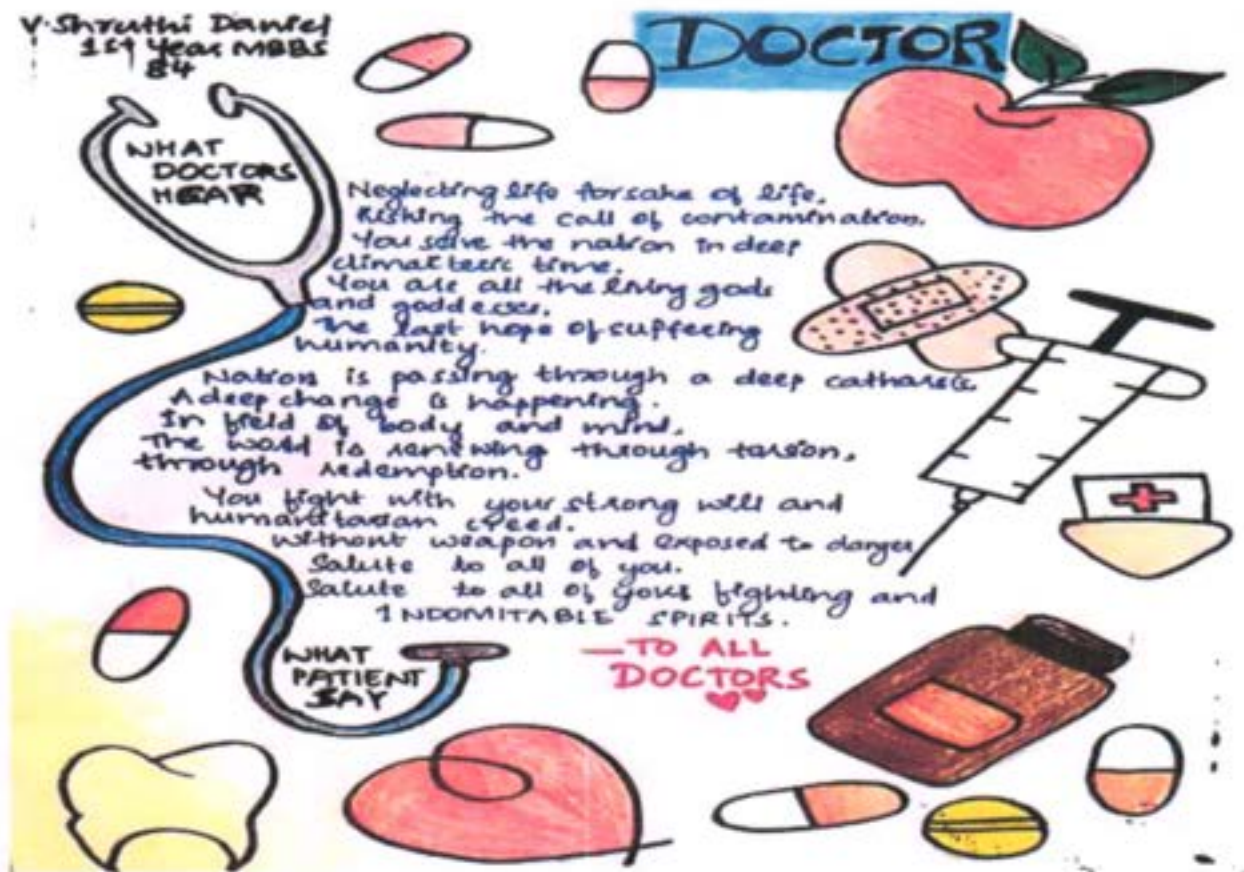 V. Shruthi Daniel
1st Year MBBS
84
DOCTOR
WHAT
DOCTORS
HEAR
Neglecting life forsake of life.
Risking the call of contamination.
You solve the nation in deep
climacteric time.
You are all the living gods
and goddesses.
The last hope of suffering
humanity.
Nation is passing through a deep catharsis
A deep change is happening.
In field of body and mind.
The world is renewing through torsion,
through redemption.
You fight with your strong will and
humanitarian creed.
without weapon and exposed to danger
Salute to all of you.
Salute to all of your fighting and
INDOMITABLE SPIRITS.
WHAT
PATIENT
SAY
—TO ALL
DOCTORS